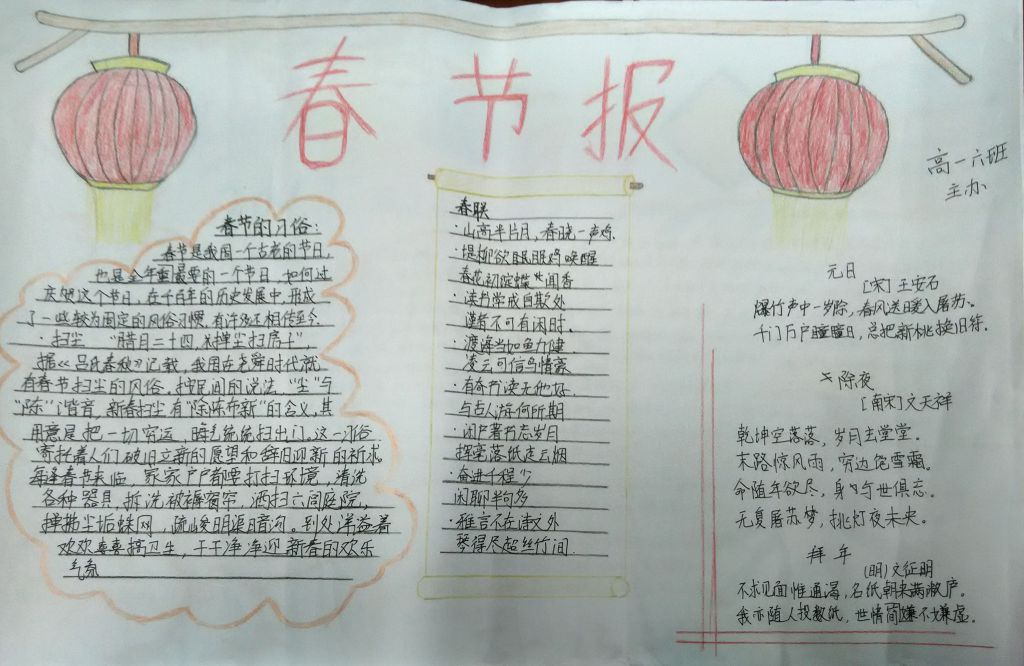 春节报
高一六班
主办
春节的习俗:
春节是我国一个古老的节日,
也是全年重最要的一个节日,如何过
庆贺这个节日,在千百年的历史发展中,形成
了一些较为固定的风俗习惯,有许多还相传至今
·扫尘 “腊月二十四,掸尘扫房子”,
据《吕氏春秋》记载,我国在尧舜时代就
有春节扫尘的风俗,按民间的说法“尘”与
“陈”谐音,新春扫尘有“除陈布新”的含义,其
用意是把一切穷运,晦气统统扫出门.这一习俗
寄托着人们破旧立新的愿望和辞旧迎新的祈求
每逢春节来临,家家户户都要打扫环境,清洗
各种器具,拆洗被褥窗帘,洒扫六闾庭院,
掸拂尘垢蛛网,疏浚明渠暗沟.到处洋溢着
欢欢喜喜搞卫生,干干净净迎新春的欢乐
气氛
春联
·山高半片月,春晓一声鸡.
·堤柳欲眠眠鸡唤醒
春花初绽蝶闻香
·读书学成自欺处
谨者不可有闲时.
·渡海当如鱼力健.
凌云可信鸟情豪
·有奇书读无他好.
与古人游何所期
·闭户著书忘岁月
挥毫落纸走云烟
·奋进千程少
闲聊半句多
·雅言不在诗文外
琴得尽超丝竹间.
元日
[宋]王安石
爆竹声中一岁除,春风送暖入屠苏。
千门万户曈曈日,总把新桃换旧符.
除夜
[南宋]文天祥
乾坤空落落,岁月去堂堂.
末路惊风雨,穷边饱雪霜.
命随年欲尽,身与世俱忘.
无复屠苏梦,挑灯夜未央.
拜年
(明)文征明
不求见面惟通谒,名纸朝来满敝庐.
我亦随人投数纸,世情简嫌不嫌虚.